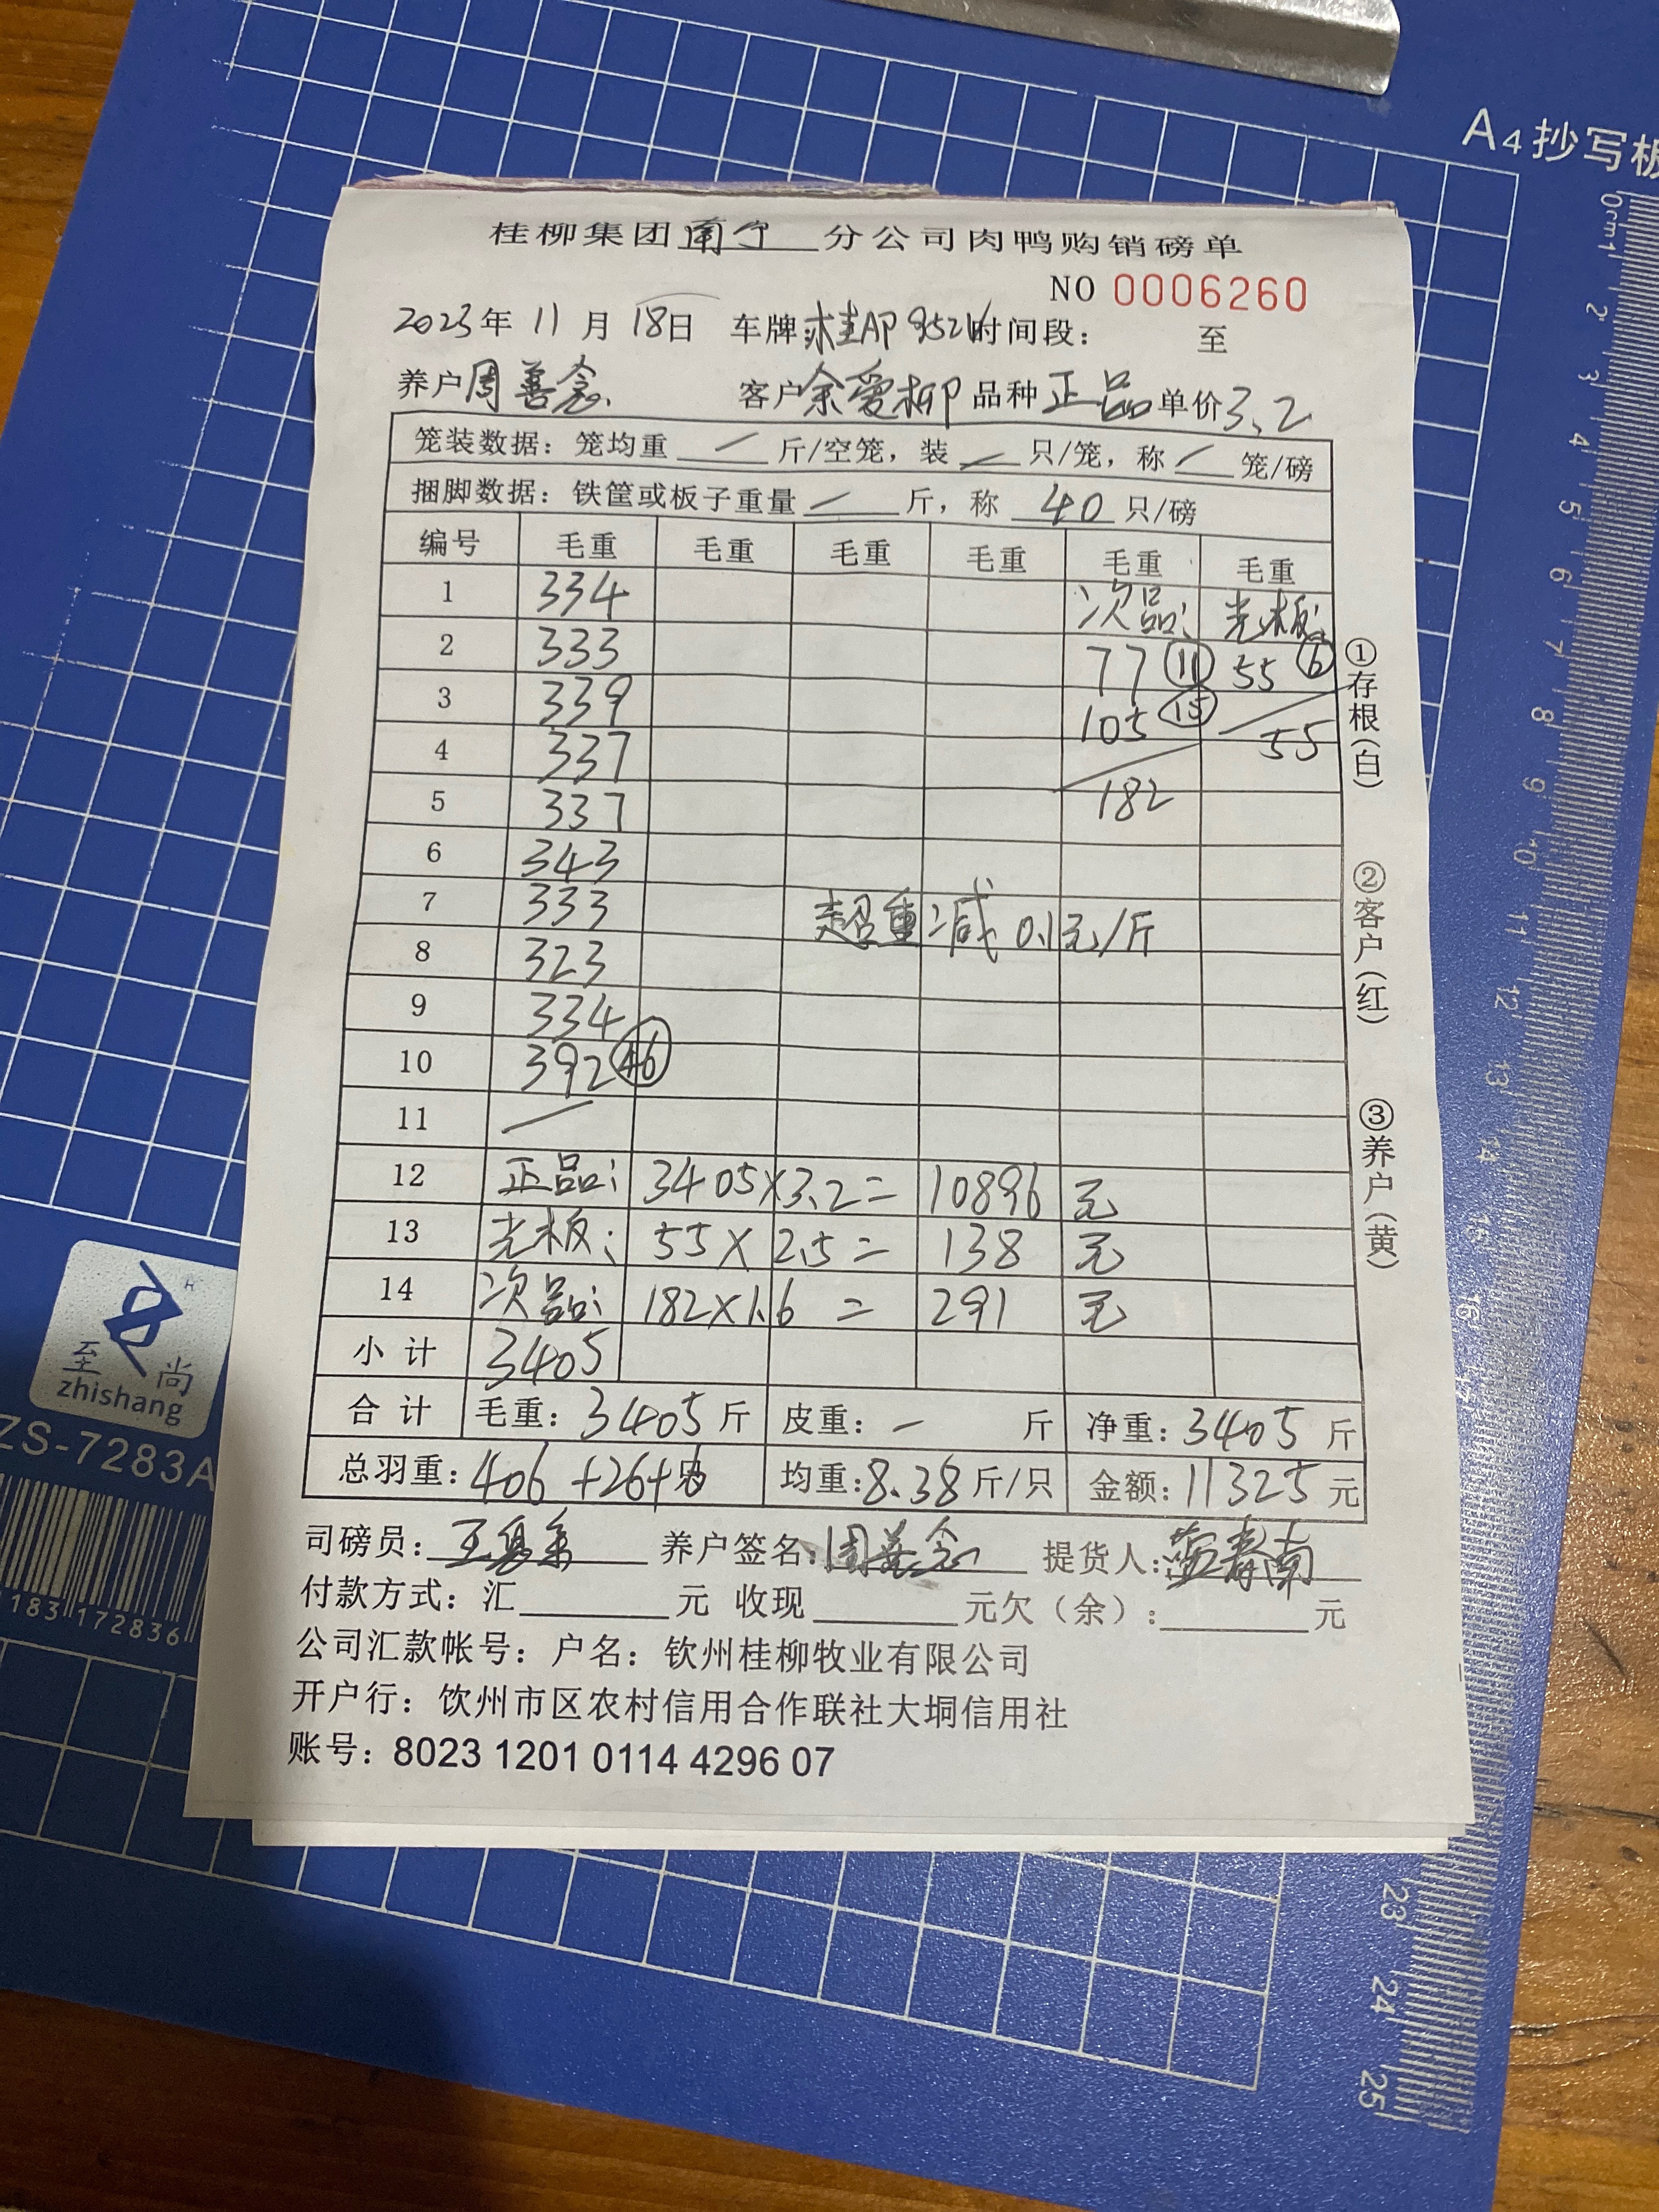 A4抄写板
桂柳集团南宁分公司肉鸭购销磅单
NO 0006260
2023年 11月 18日 车牌 桂AP 时间段： 至
养户周善念 客户余爱柳 品种正品 单价3.2
笼装数据：笼均重 / 斤/空笼，装 / 只/笼，称 / 笼/磅
捆脚数据：铁筐或板子重量 / 斤，称 40 只/磅
编号 毛重 毛重 毛重 毛重 毛重 毛重
1 334 次品： 光板：
2 333 77 ⑪ 55 ⑥
3 339 105 ⑮ 55
4 337
5 337 182
6 343
7 333 超重减0.1元/斤
8 323
9 334
10 392 ㊻
11 /
12 正品： 3405×3.2= 10896 元
13 光板： 55×2.5= 138 元
14 次品： 182×1.6= 291 元
小计 3405
合计 毛重：3405斤 皮重：- 斤 净重：3405斤
总羽重：406+26+6 均重：8.38斤/只 金额：11325元
司磅员： 养户签名：周善念 提货人：
付款方式：汇 元 收现 元欠（余）： 元
公司汇款帐号：户名：钦州桂柳牧业有限公司
开户行：饮州市区农村信用合作联社大垌信用社
账号：8023 1201 0114 4296 07
①存根（白）
②客户（红）
③养户（黄）
至尚
zhishang
ZS-7283A
183 172836
0cm1 2 3 4 5 6 7 8 9 10 11 12 13 14 16 23 24 25